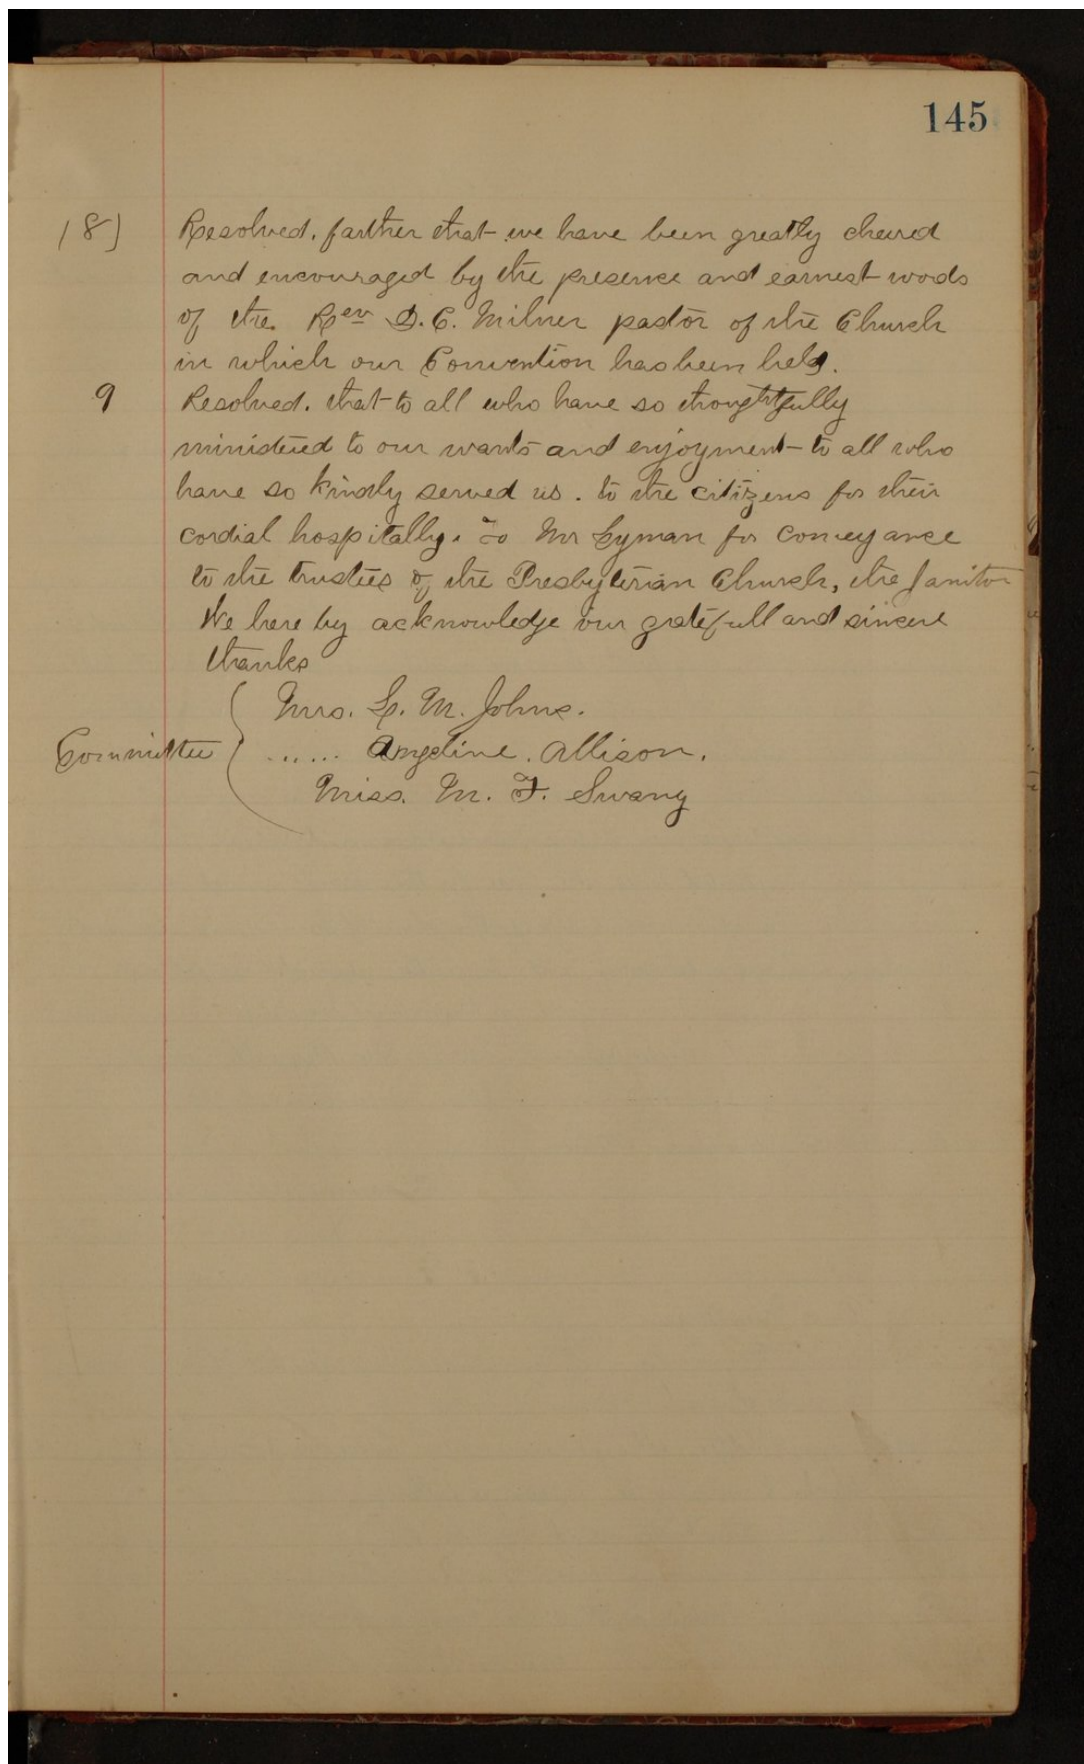 145
(8) Resolved. farther that we have been greatly cheerd
and encouraged by the presence and earnest words
of the. Rev D. C. Milner pastor of the Church
in which our Convention has been held.
9 Resolved. that to all who have so thoughtfully
ministered to our wants and enjoyment – to all who
have so kindly served us. to the citizens for their
cordial hospitally. To Mr Lyman for conveyance
to the trustees of the Presbyterian Church, the Janitor
We here by acknowledge our gratefull and sincere
thanks
Mrs. L. M. Johns.
Committee ...... Angeline. Allison.
Miss. M. F. Swany